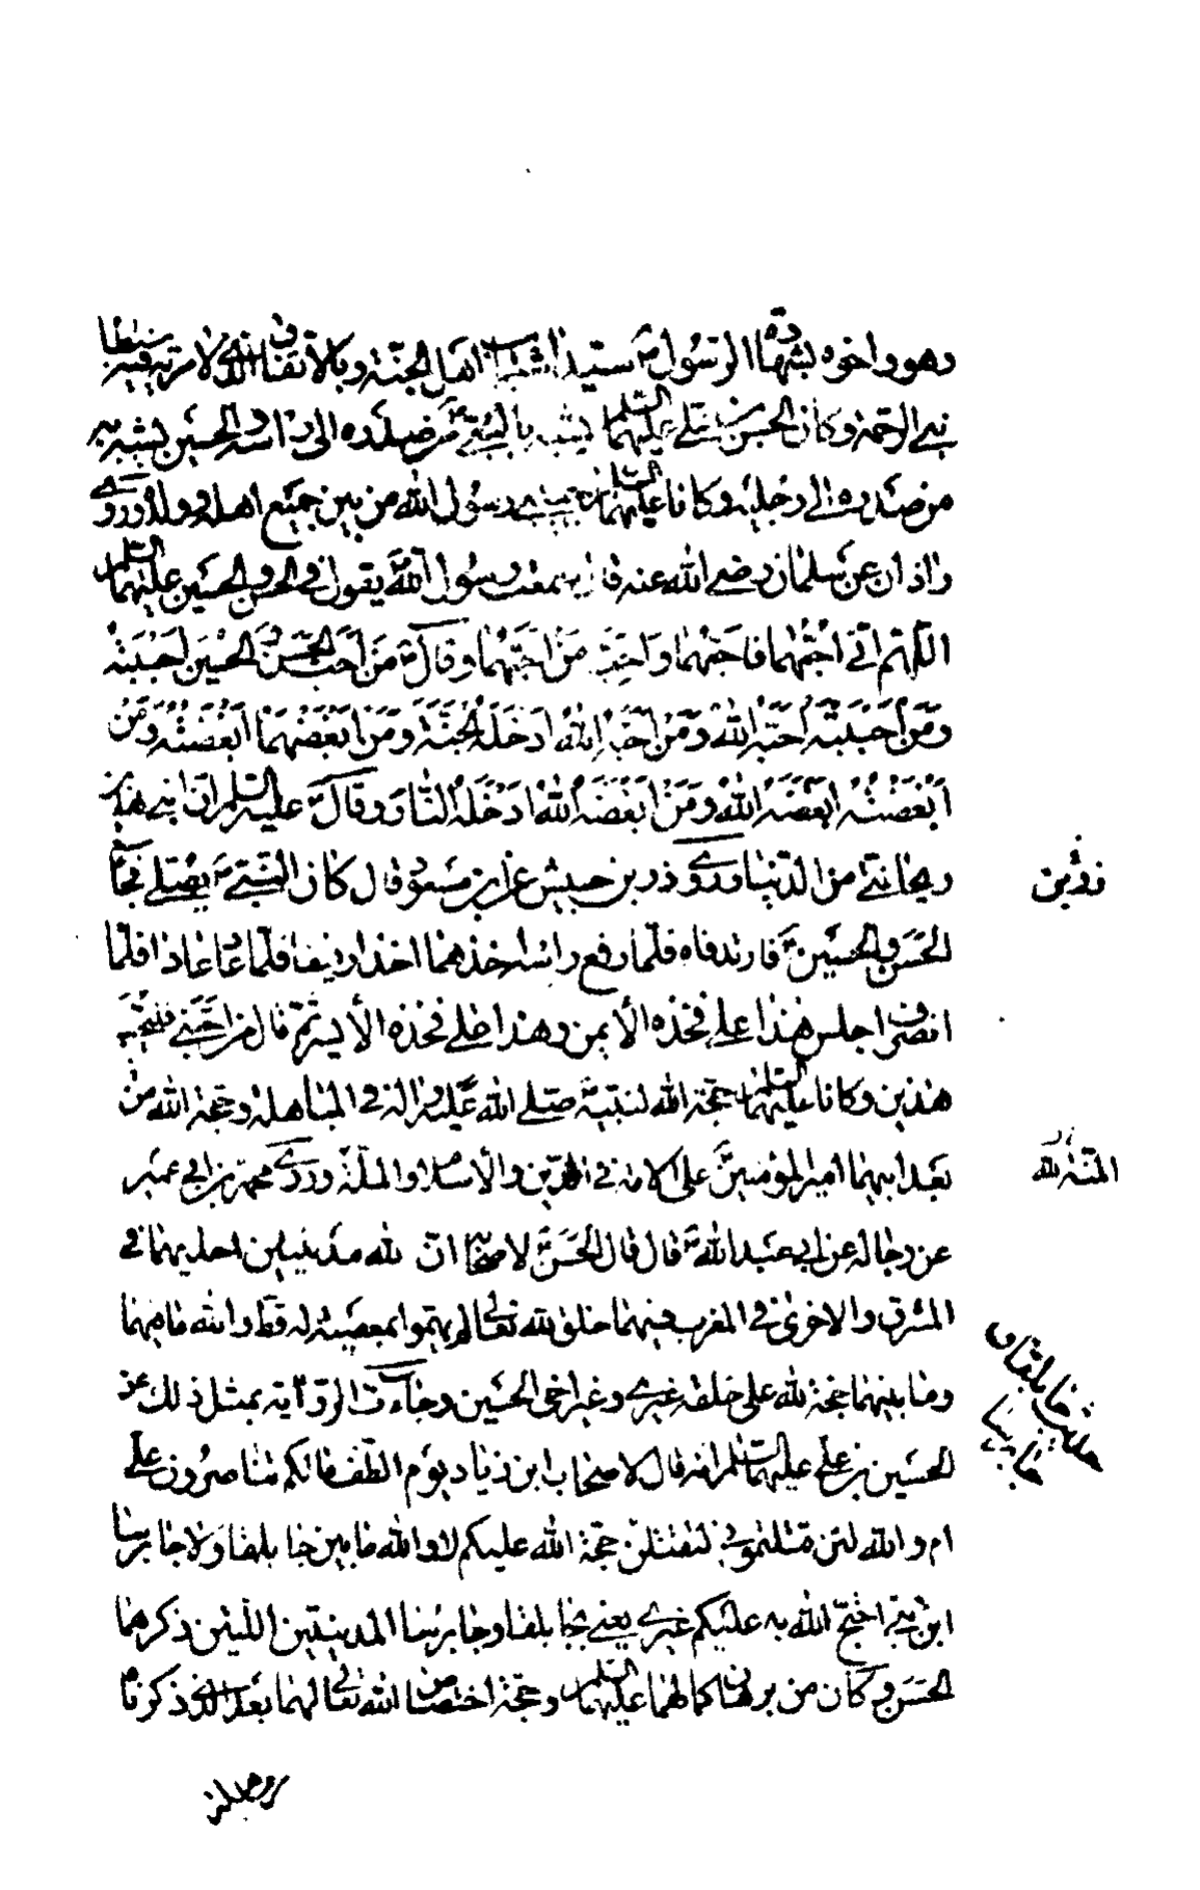 وهو واخوه بشهادة الرسول ص سيدا شباب اهل الجنة وبالاتفاق الذي لا مرية فيه سبطا
نبي الرحمة وكان الحسن بن علي عليهما السلم يشبه بالنبي ص من صدره الى راسه والحسين يشبه به
من صدره الى رجليه وكانا عليهما السلم حبيبي رسول الله من بين جميع اهله وولده وروى
زاذان عن سلمان رضي الله عنه قال سمعت رسول الله ص يقول في الحسن والحسين عليهما السلم
اللهم اني احبهما فاحبهما واحبب من احبهما وقال ص من احب الحسن والحسين احببته
ومن احببته احبه الله ومن احبه الله ادخله الجنة ومن ابغضهما ابغضته ومن
ابغضته ابغضه الله ومن ابغضه الله ادخله النار وقال عليه السلم ان ابني هذين
ريحانتي من الدنيا وروى زر بن حبيش عن ابن مسعود قال كان النبي ص يصلي فجاء
الحسن والحسين ع فارتدفاه فلما رفع راسه اخذهما اخذا رفيقا فلما عاد عادا فلما
انصرف اجلس هذا على فخذه الأيمن وهذا على فخذه الأيسر ثم قال من احبني فليحب
هذين وكانا عليهما السلم حجة الله لنبيه صلى الله عليه واله في المباهلة وحجة الله من
بعد ابيهما امير المؤمنين ع على الامة في الدين والاسلام والملة وروى محمد بن ابي عمير
عن رجاله عن ابي عبد الله ع قال قال الحسن ع لاصحابه ان لله مدينتين احديهما في
المشرق والاخرى في المغرب فيهما خلق لله تعالى لم يهموا بمعصية له قط والله ما فيهما
وما بينهما حجة لله على خلقه غيري وغير اخي الحسين وجاءت الرواية بمثل ذلك عن
الحسين بن علي عليهما السلم انه قال لاصحاب ابن زياد يوم الطف مالكم تناصرون علي
ام والله لئن قتلتموني لتقتلن حجة الله عليكم لا والله ما بين جابلقا ولا جابرسا
ابن نبي احتج الله به عليكم غيري يعني بجابلقا وجابرسا المدينتين اللتين ذكرهما
الحسن ع وكان من برهان كمالهما عليهما السلم وحجة اختصاص الله تعالى لهما بعد الذي ذكرناه